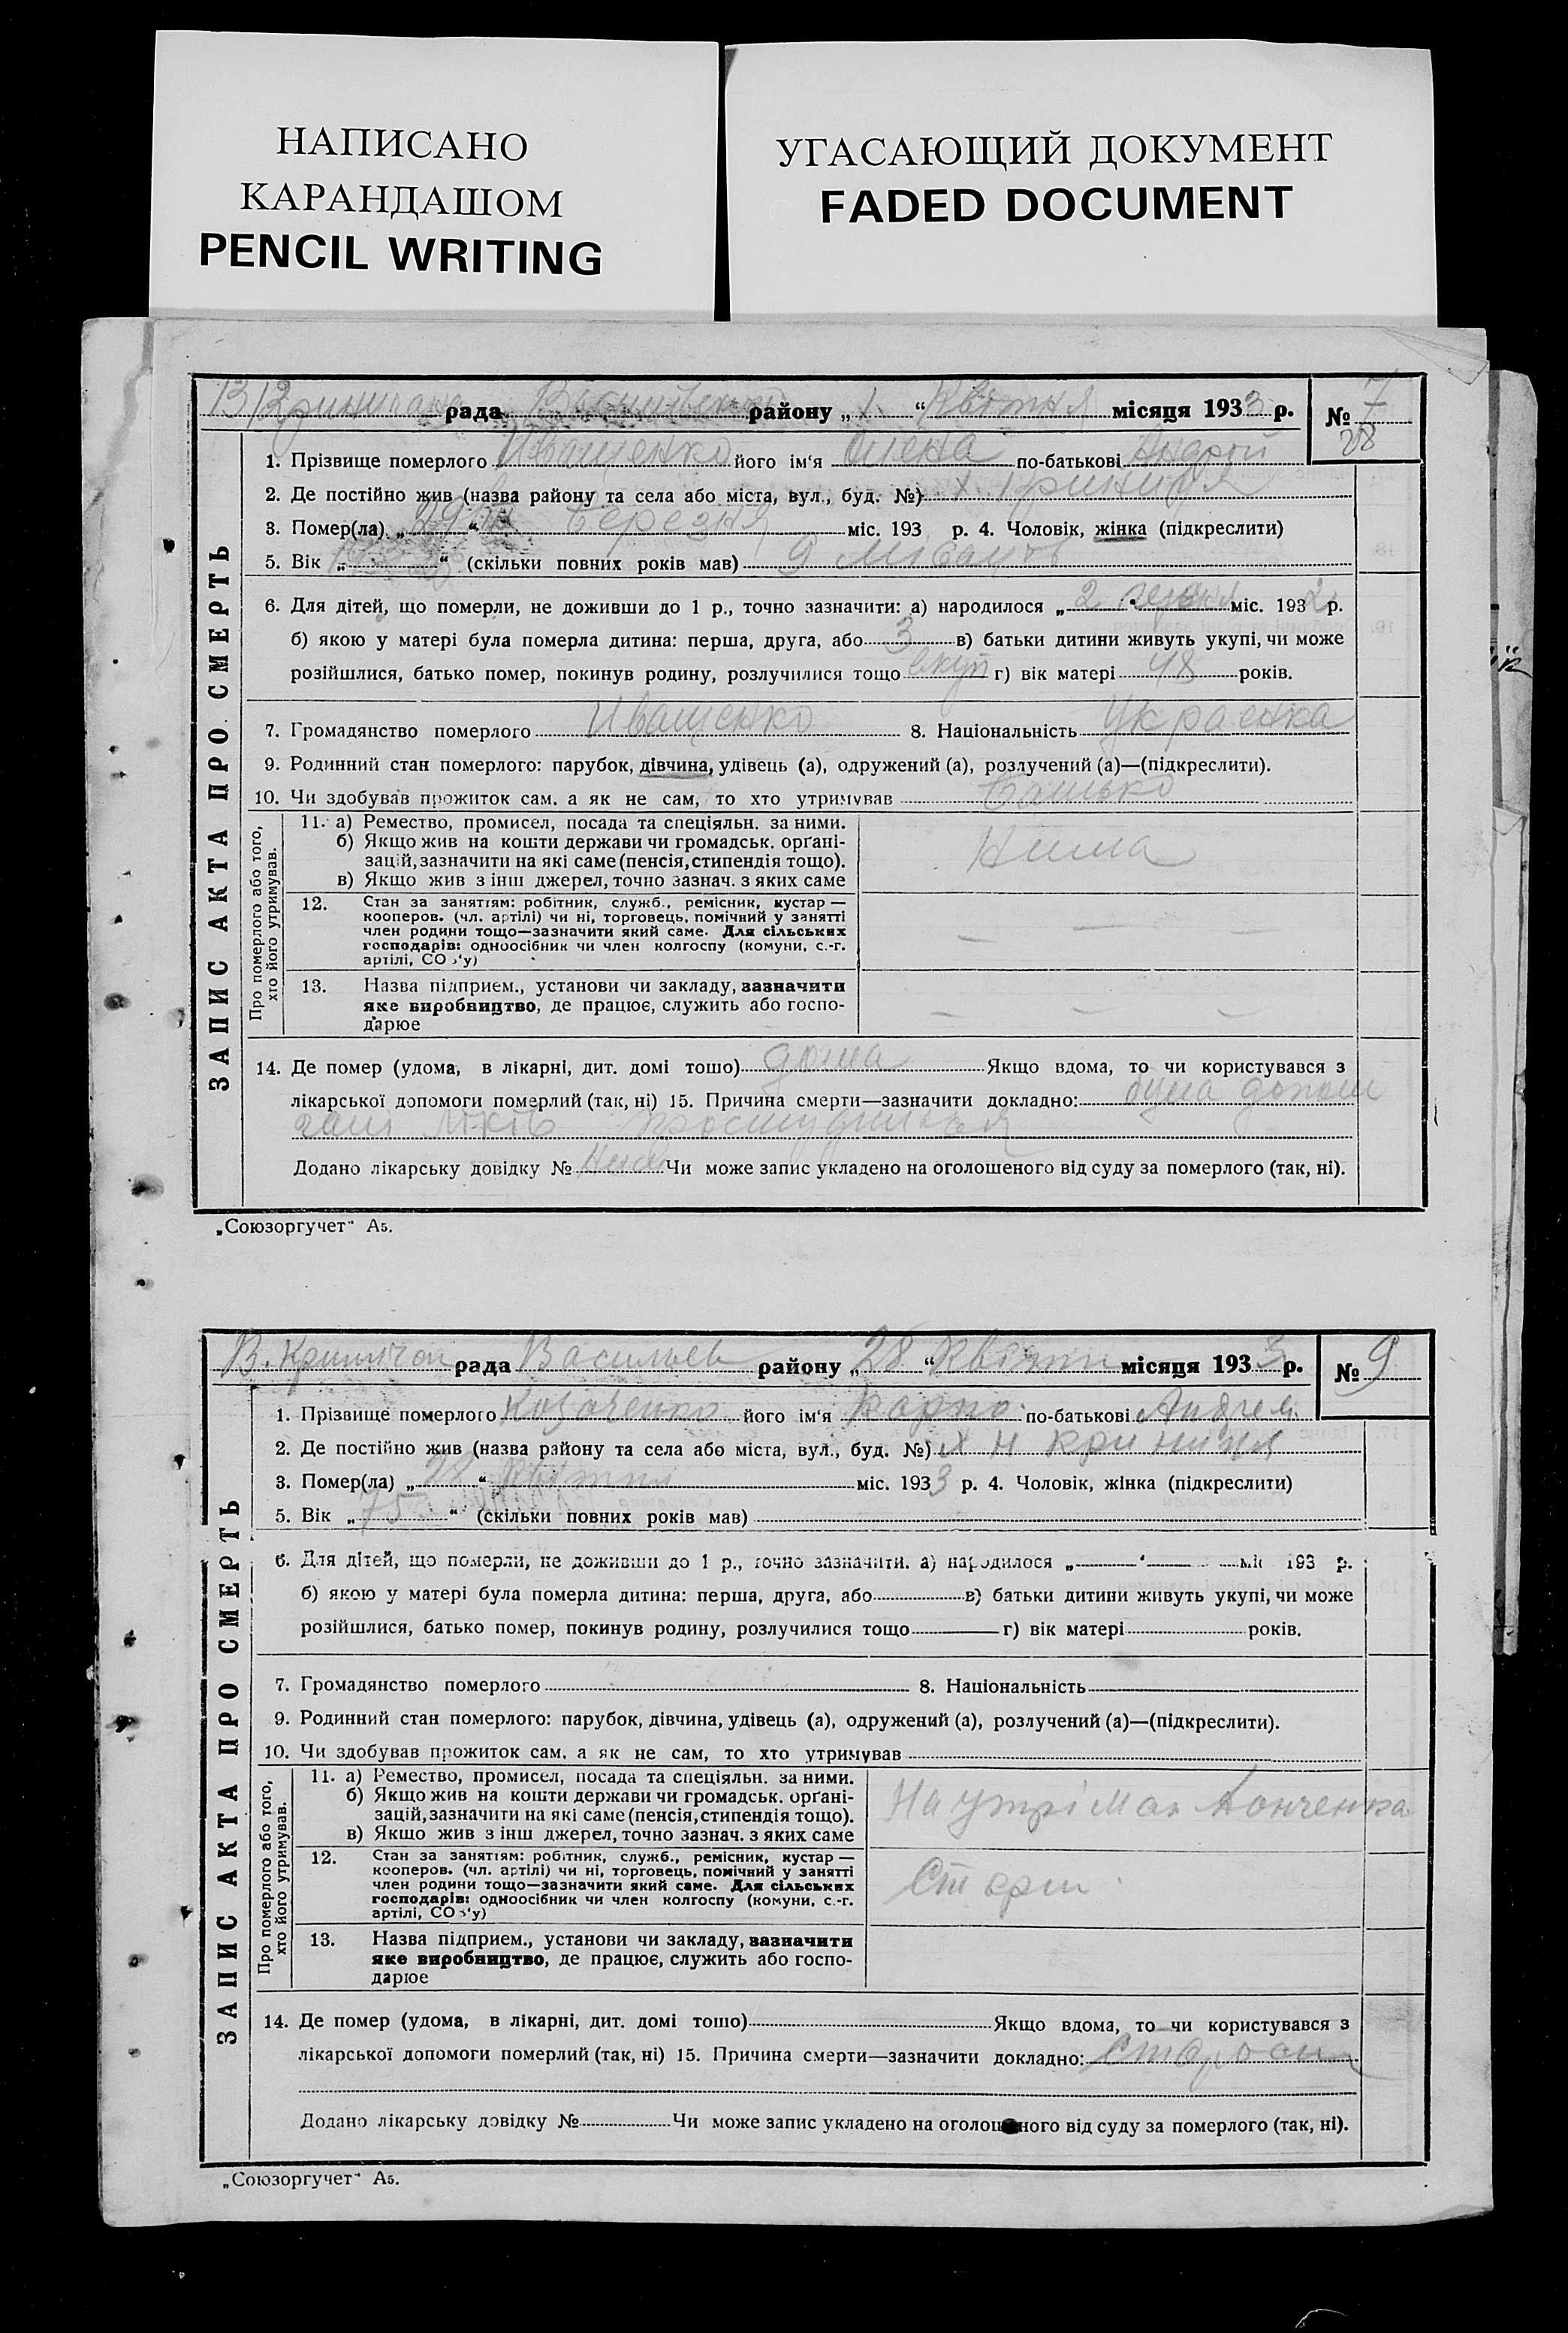 НАПИСАНО
КАРАНДАШОМ
PENCIL WRITING
УГАСАЮЩИЙ ДОКУМЕНТ
FADED DOCUMENT
рада району „ 1 “ Квітня місяця 1933 р. № 7
28
ЗАПИС АКТА ПРО СМЕРТЬ
1. Прізвище померлого Иващенко його ім‘я Олена по-батькові Андрій
2. Де постійно жив (назва району та села або міста, вул., буд. №) х.
3. Помер(ла) „ 29 “ Березня міс. 193 р. 4. Чоловік, жінка (підкреслити)
5. Вік „ “ (скільки повних років мав) 9 місяців
6. Для дітей, що померли, не доживши до 1 р., точно зазначити: а) народилося „ 2 “ міс. 1932 р.
б) якою у матері була померла дитина: перша, друга, або 3 в) батьки дитини живуть укупі, чи може
розійшлися, батько помер, покинув родину, розлучилися тощо вкупі г) вік матері 48 років.
7. Громадянство померлого Иващенко 8. Національність Украенка
9. Родинний стан померлого: парубок, дівчина, удівець (а), одружений (а), розлучений (а)—(підкреслити).
10. Чи здобував прожиток сам, а як не сам, то хто утримував батько
Про померлого або того, хто його утримував.
11. а) Ремество, промисел, посада та спеціяльн. за ними.
б) Якщо жив на кошти держави чи громадськ. орґані-
зацій, зазначити на які саме (пенсія, стипендія тощо).
в) Якщо жив з інш джерел, точно зазнач. з яких саме
Нима
12. Стан за заняттям: робітник, служб., ремісник, кустар —
кооперов. (чл. артілі) чи ні, торговець, помічний у занятті
член родини тощо—зазначити який саме. Для сільських
господарів: одноосібник чи член колгоспу (комуни, с.-г.
артілі, СОЗ‘у)
— — —
13. Назва підприєм., установи чи закладу, зазначити
яке виробництво, де працює, служить або госпо-
дарює
— — —
14. Де помер (удома, в лікарні, дит. домі тошо) дома Якщо вдома, то чи користувався з
лікарської допомоги померлий (так, ні) 15. Причина смерти—зазначити докладно: була
простудилася
Додано лікарську довідку № Чи може запис укладено на оголошеного від суду за померлого (так, ні).
„Союзоргучет“ А5.
В. рада Васильев району „ 28 “ Квітня місяця 1933 р. № 9
ЗАПИС АКТА ПРО СМЕРТЬ
1. Прізвище померлого Козаченко його ім‘я Карпо по-батькові Андрей
2. Де постійно жив (назва району та села або міста, вул., буд. №) х Н Криниця
3. Помер(ла) „ 28 “ Квітня міс. 1933 р. 4. Чоловік, жінка (підкреслити)
5. Вік „ 75 “ (скільки повних років мав)
6. Для дітей, що померли, не доживши до 1 р., точно зазначити. а) народилося „ “ міс 193 р.
б) якою у матері була померла дитина: перша, друга, або в) батьки дитини живуть укупі, чи може
розійшлися, батько помер, покинув родину, розлучилися тощо г) вік матері років.
7. Громадянство померлого 8. Національність
9. Родинний стан померлого: парубок, дівчина, удівець (а), одружений (а), розлучений (а)—(підкреслити).
10. Чи здобував прожиток сам, а як не сам, то хто утримував
Про померлого або того, хто його утримував.
11. а) Ремество, промисел, посада та спеціяльн. за ними.
б) Якщо жив на кошти держави чи громадськ. орґані-
зацій, зазначити на які саме (пенсія, стипендія тощо).
в) Якщо жив з інш джерел, точно зазнач. з яких саме
На
12. Стан за заняттям: робітник, служб., ремісник, кустар —
кооперов. (чл. артілі) чи ні, торговець, помічний у занятті
член родини тощо—зазначити який саме. Для сільських
господарів: одноосібник чи член колгоспу (комуни, с.-г.
артілі, СОЗ‘у)
13. Назва підприєм., установи чи закладу, зазначити
яке виробництво, де працює, служить або госпо-
дарює
14. Де помер (удома, в лікарні, дит. домі тошо) Якщо вдома, то чи користувався з
лікарської допомоги померлий (так, ні) 15. Причина смерти—зазначити докладно: Старость
Додано лікарську довідку № Чи може запис укладено на оголошеного від суду за померлого (так, ні).
„Союзоргучет“ А5.